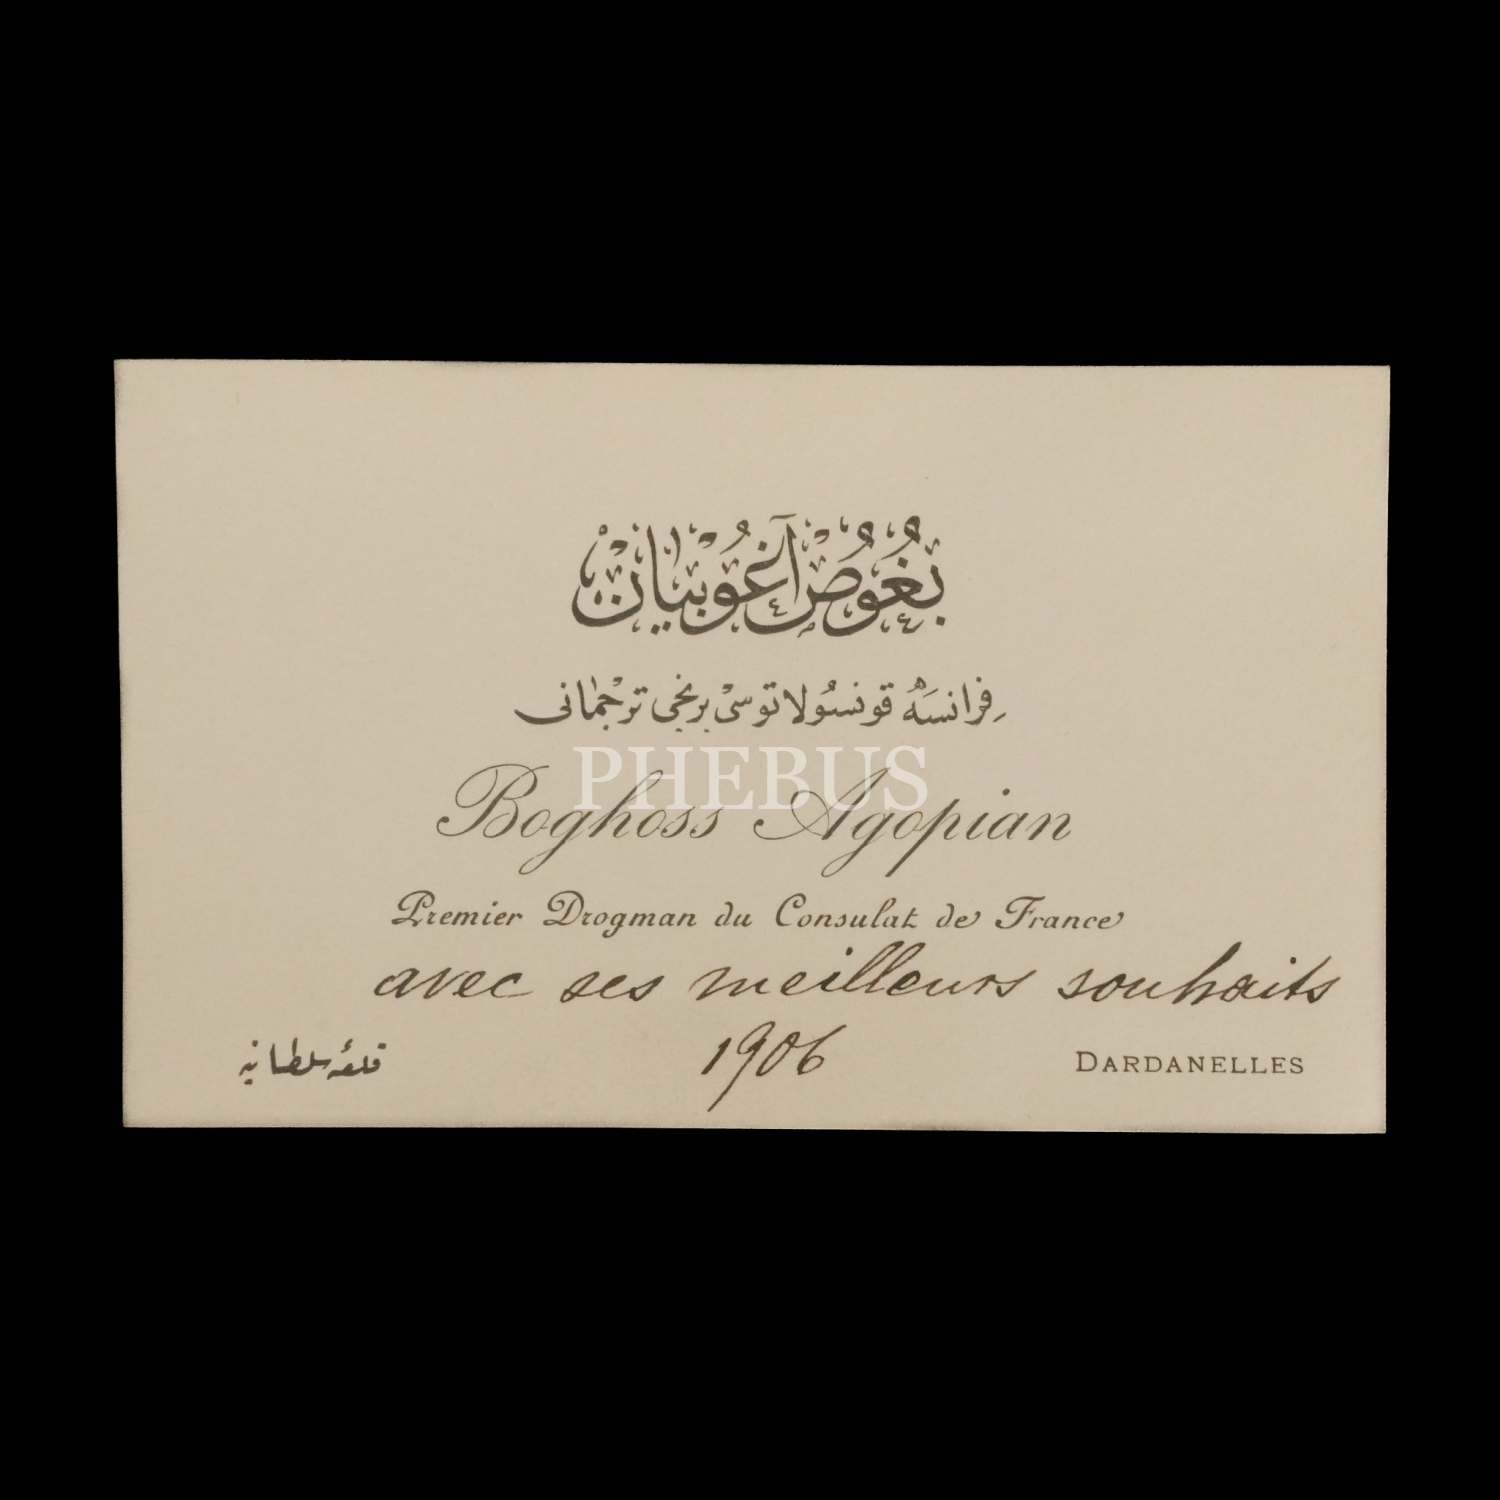 بغوص آغوبیان
فرانسه قونسولاتوسی برنجی ترجمانی
PHEBUS
Boghoss Agopian
Premier Drogman du Consulat de France
avec ses meilleurs souhaits
1906
قلعۀ سلطانیه
DARDANELLES